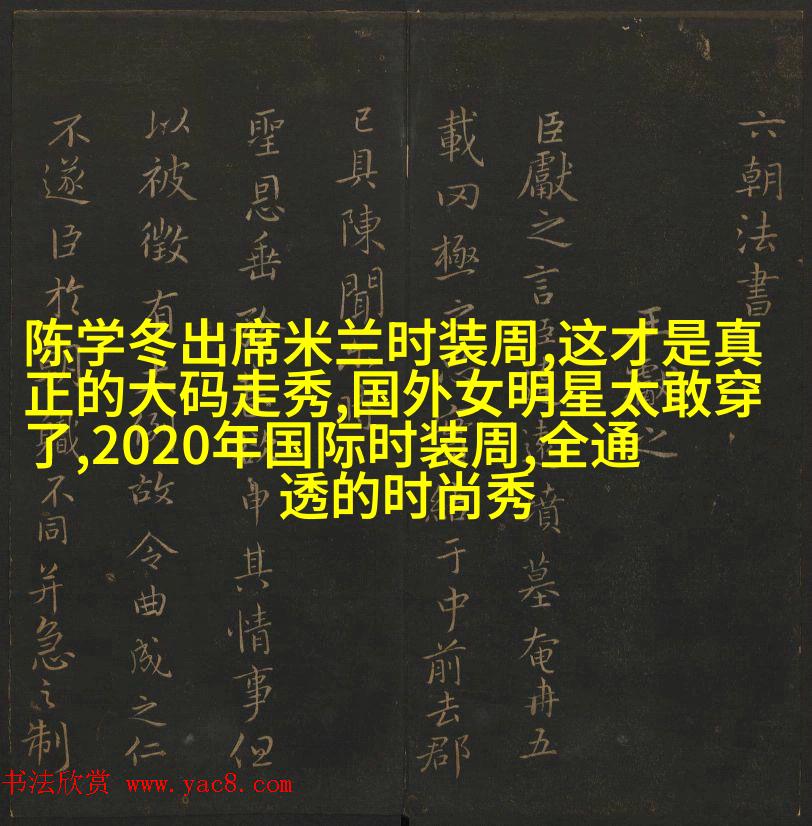 六朝法書
王獻之
臣獻之言臣違墳墓奄冉五
載罔極之于中前去郡
已具陳聞
聖恩垂申其情事但
以被徵有例故令曲成之仁
不遂臣於職不同并急之制
陈学冬出席米兰时装周,这才是真
正的大码走秀,国外女明星太敢穿
了,2020年国际时装周,全通
透的时尚秀
书法欣赏 www.yac8.com